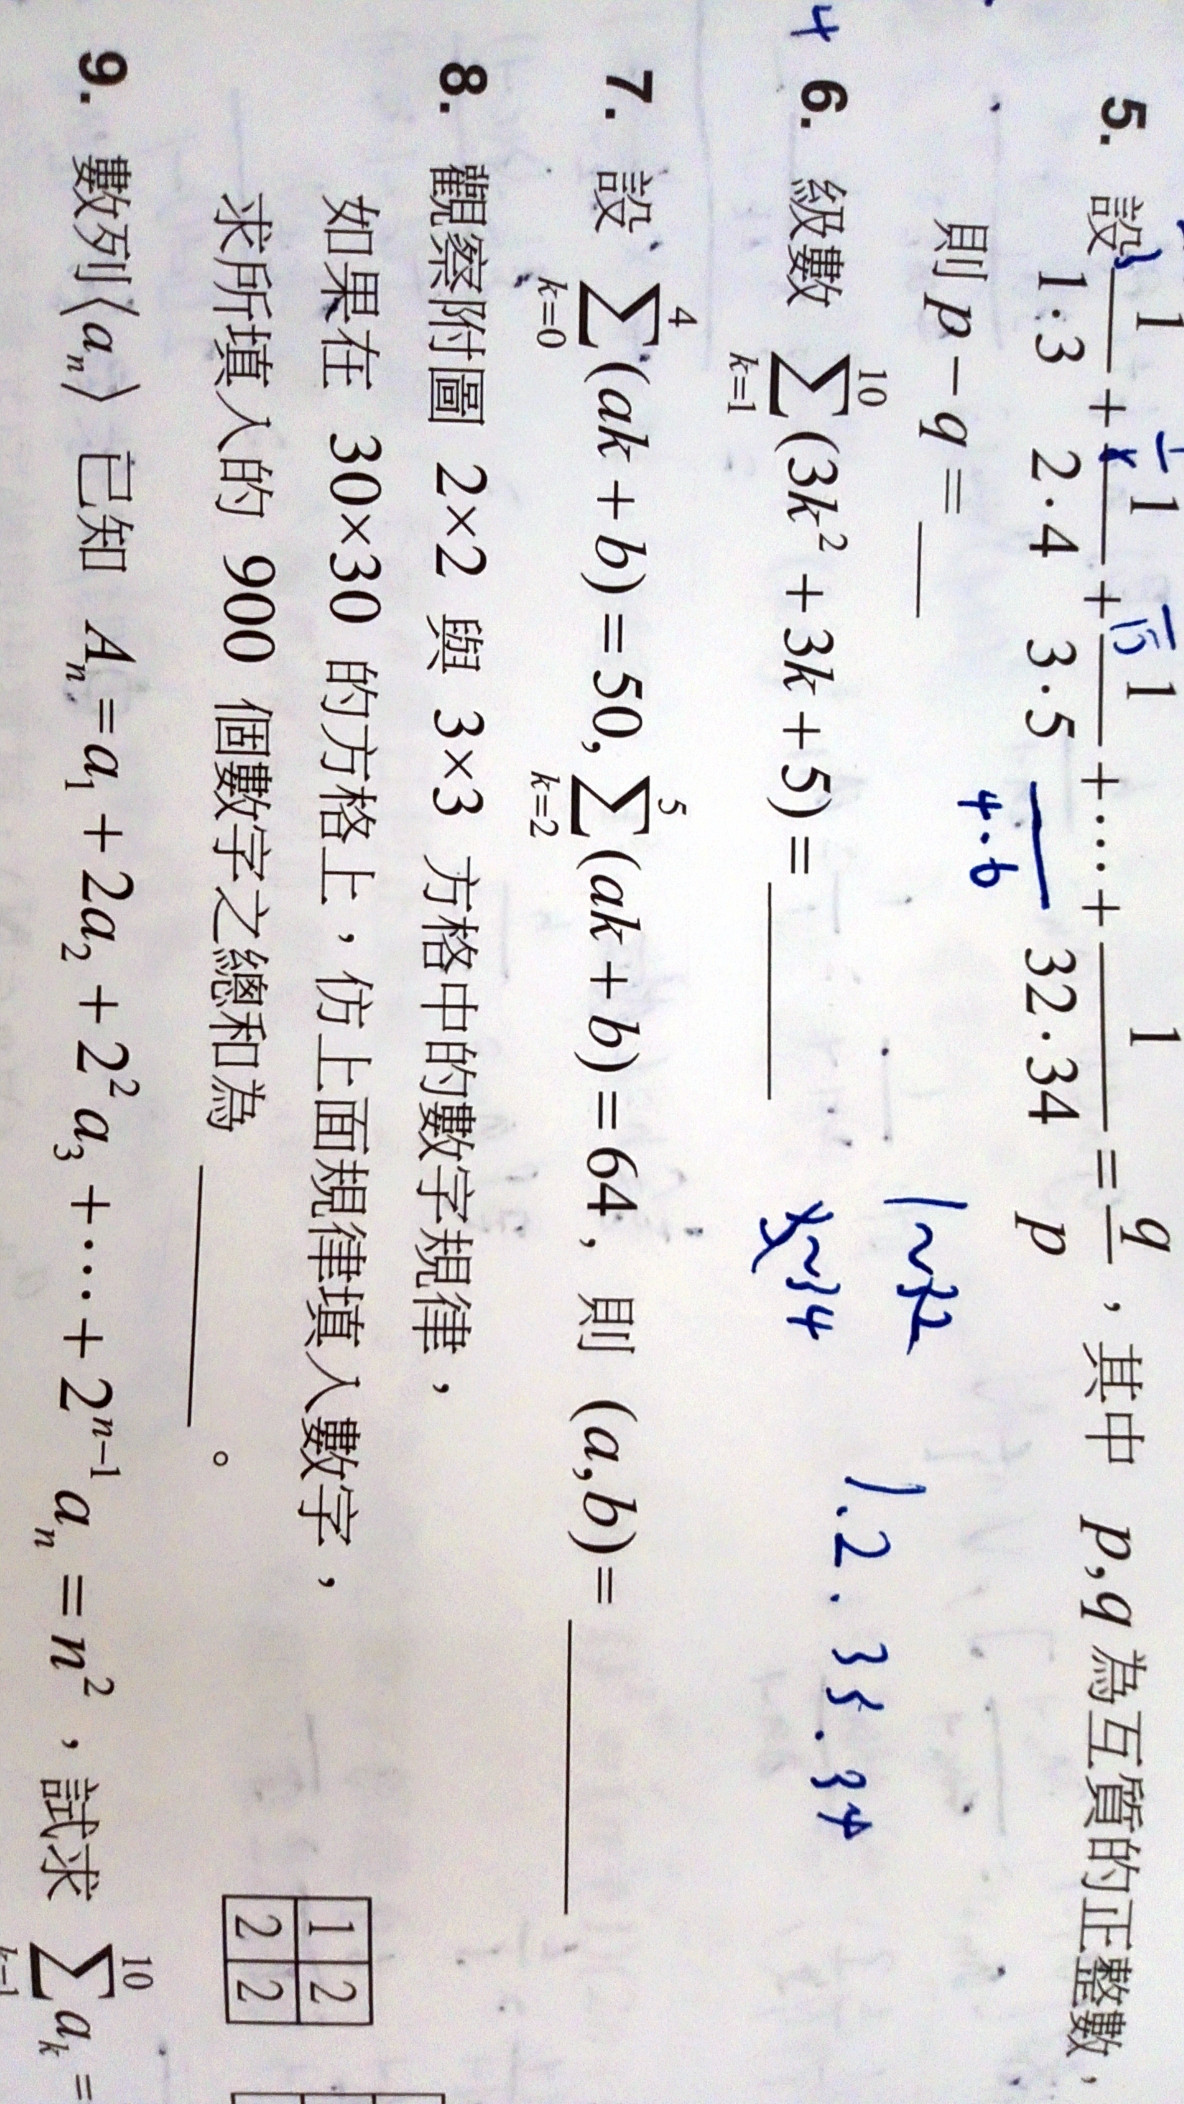 5. 設 1/(1·3) + 1/(2·4) + 1/(3·5) + ⋯ + 1/(32·34) = q/p，其中 p,q 為互質的正整數，
4·6
則 p − q = ___
1~32
+ 6. 級數 ∑_{k=1}^{10} (3k² + 3k + 5) = ___
~34
1.2.33.34
7. 設 ∑_{k=0}^{4} (ak + b) = 50, ∑_{k=2}^{5} (ak + b) = 64，則 (a,b) = ___
8. 觀察附圖 2×2 與 3×3 方格中的數字規律，
如果在 30×30 的方格上，仿上面規律填入數字，
求所填入的 900 個數字之總和為 ___。
1 2
2 2
9. 數列⟨aₙ⟩ 已知 Aₙ = a₁ + 2a₂ + 2²a₃ + ⋯ + 2ⁿ⁻¹aₙ = n²，試求 ∑_{k=1}^{10} aₖ =